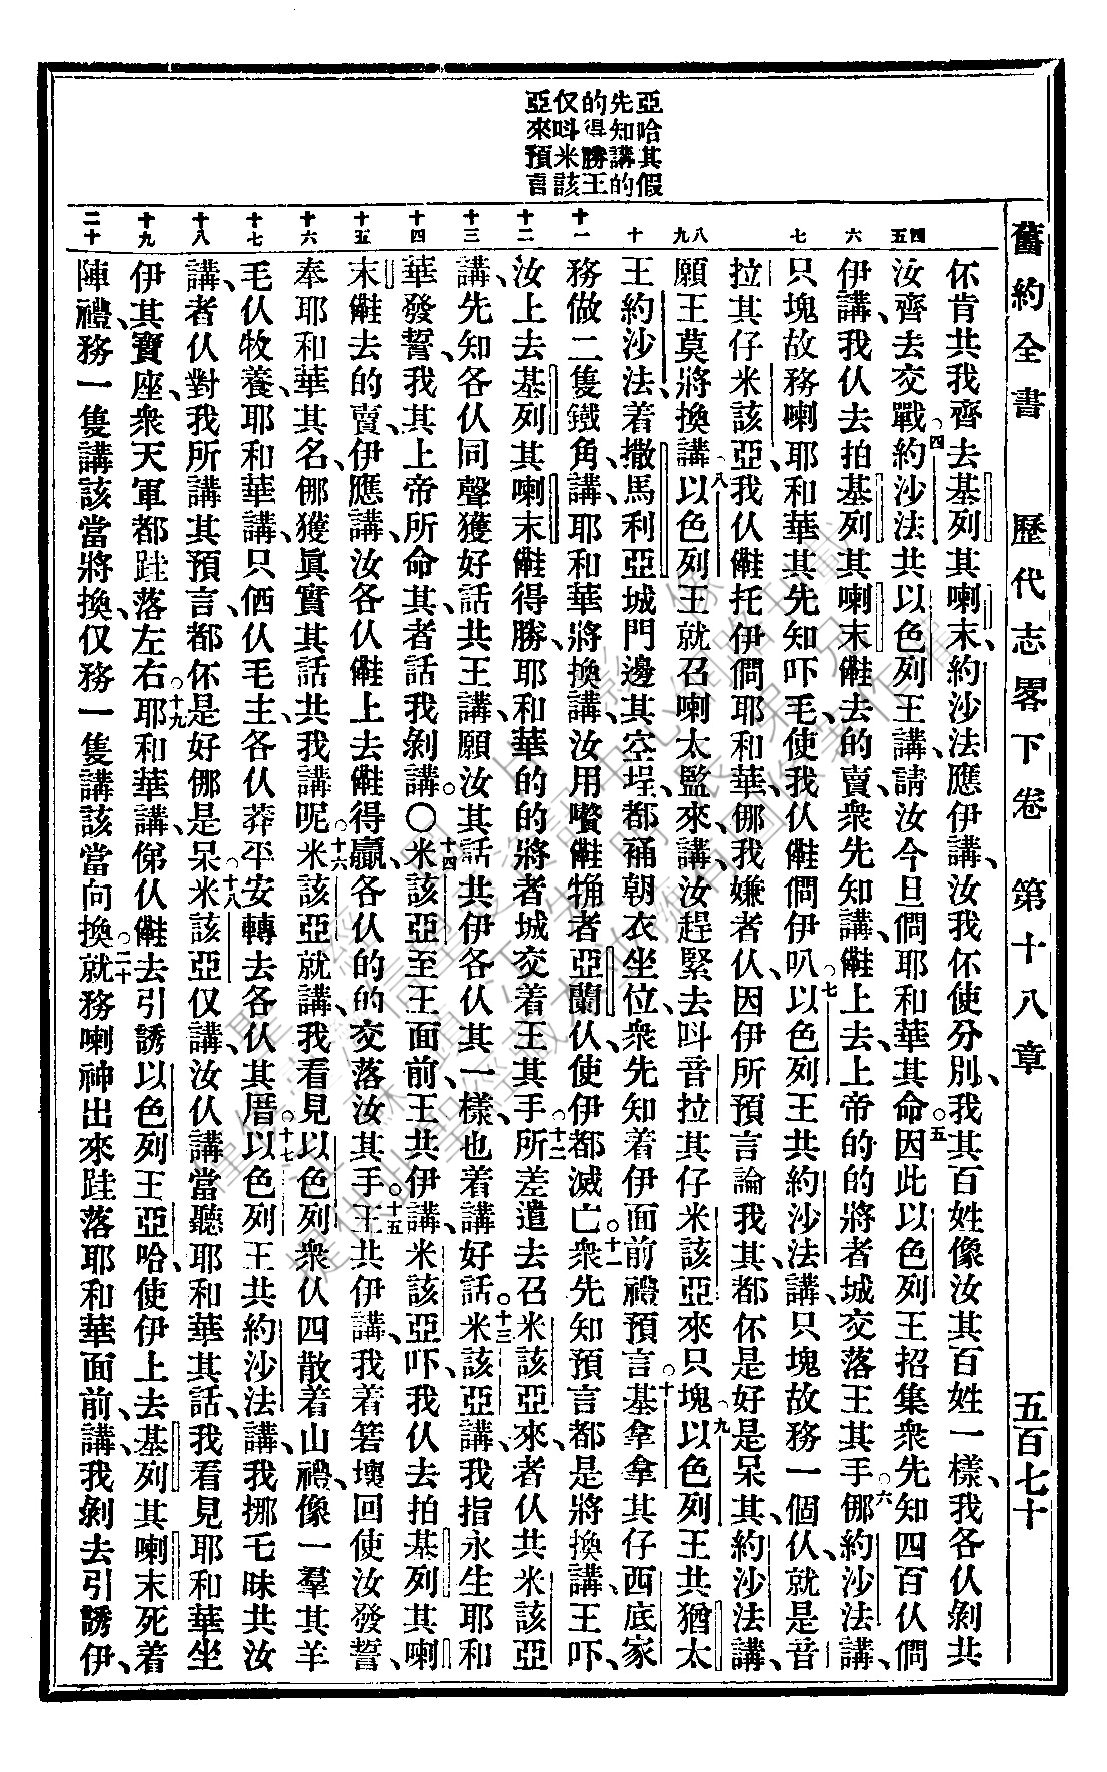 舊約全書 歷代志畧下卷 第十八章 五百七十
亞哈其假
先知講的
的得勝王
仅呌米該
亞來預言
四 五 六 七 八 九 十 十一 十二 十三 十四 十五 十六 十七 十八 十九 二十
伓肯共我齊去基列其喇末、約沙法應伊講、汝我伓使分別、我其百姓像汝其百姓一樣、我各仈剝共
汝齊去交戰。四約沙法共以色列王講、請汝今旦僩耶和華其命。五因此以色列王招集衆先知四百仈僩
伊講、我仈去拍基列其喇末㑚去的賣、衆先知講、㑚上去、上帝的的將者城交落王其手。六倻約沙法講、
只塊故務喇耶和華其先知吓毛、使我仈㑚僩伊叭。七以色列王共約沙法講、只塊故務一個仈、就是音
拉其仔米該亞、我仈㑚托伊僩耶和華、倻我嫌者仈、因伊所預言論我其、都伓是好是呆其、約沙法講、
願王莫將換講。八以色列王就召喇太監來、講、汝趕緊去呌音拉其仔米該亞來只塊。九以色列王共猶太
王約沙法、着撒馬利亞城門邊其空埕、都補朝衣坐位、衆先知着伊面前禮預言。十基拿拿其仔西底家
務做二隻鐵角、講、耶和華將換講、汝用嘴㑚牰者亞蘭仈、使伊都滅亡。十一衆先知預言都是將換講、王吓、
汝上去基列其喇末㑚得勝、耶和華的的將者城交着王其手。十二所差遣去召米該亞來、者仈共米該亞
講、先知各仈同聲獲好話共王講、願汝其話共伊各仈其一樣、也着講好話。十三米該亞講、我指永生耶和
華發誓、我其上帝所命其、者話我剝講。〇十四米該亞至王面前、王共伊講、米該亞吓、我仈去拍基列其喇
末㑚去的賣、伊應講、汝各仈㑚上去㑚得贏、各仈的的交落汝其手。十五王共伊講、我着箬壞回使汝發誓、
奉耶和華其名、倻獲眞實其話共我講呢。十六米該亞就講、我看見以色列衆仈四散着山禮、像一羣其羊
毛仈牧養、耶和華講、只㑄仈毛主、各仈莽平安轉去各仈其厝。十七以色列王共約沙法講、我挪乇昧共汝
講、者仈對我所講其預言、都伓是好倻是呆。十八米該亞仅講、汝仈講當聽耶和華其話、我看見耶和華坐
伊其寶座、衆天軍都跬落左右。十九耶和華講、俤仈㑚去引誘以色列王亞哈、使伊上去基列其喇末死着
陣禮、務一隻講該當將換、仅務一隻講該當向換。二十就務喇神出來跬落耶和華面前、講、我剝去引誘伊、